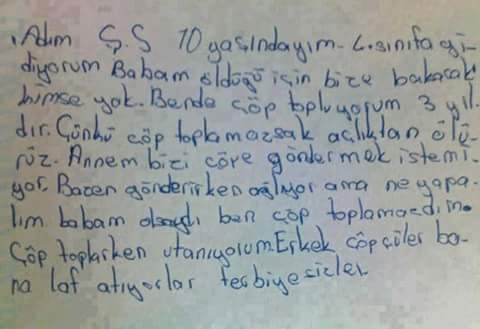 Adım Ş.S 10 yaşındayım. 4. sınıfa gi-
diyorum Babam öldüğü için bize bakacak
kimse yok. Bende çöp topluyorum 3 yıl-
dır. Çünkü çöp toplamazsak açlıktan ölü-
rüz. Annem bizi çöpe göndermek istemi-
yor. Bazen gönderirken ağlıyor ama ne yapa-
lım babam olsaydı ben çöp toplamazdım.
Çöp toplarken utanıyorum. Erkek çöpçüler ba-
na laf atıyorlar terbiyesizler